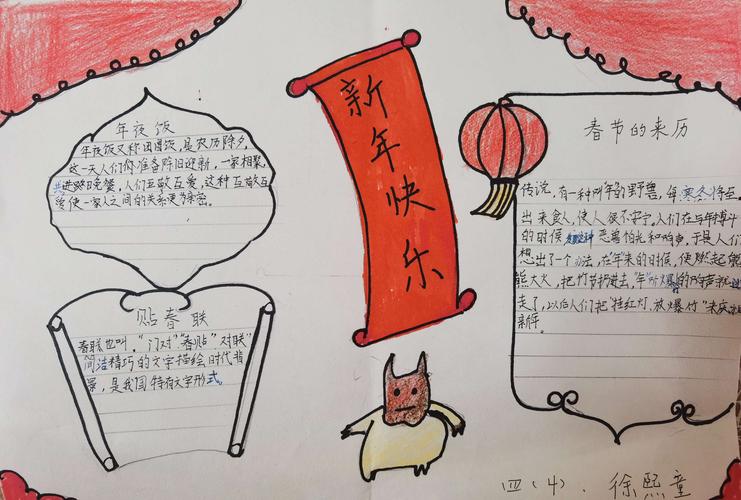 新年快乐
年夜饭
年夜饭又称团圆饭,是农历除夕,
这一天人们你准备阵旧迎新,一家相聚,
共进晚餐,人们互敬互爱,这种互敬互
爱使一家人之间的关系更为亲密。
贴春联
春联也叫。“门对”“春贴”对联”
简洁精巧的文字描绘时代背
景,是我国特有文字形式。
春节的来历
传说,有一种叫年的野兽,每寒冬将至。
出来食人,使人很不安宁。人们在与年搏斗
的时候,发现这种恶兽怕光和响声,于是人们
想出了一个办法,在“年来的时候,使燃起熊
熊大火,把竹节扔进去,“年”听爆的响声就逃
走了,以后人们把“挂红灯,放爆竹”来庆
新年。
四(4).徐熙童